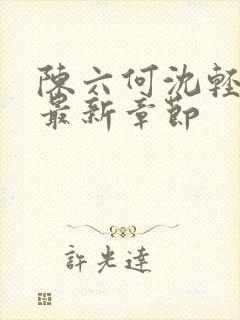 陳六何沈輕
最新章節
許光達